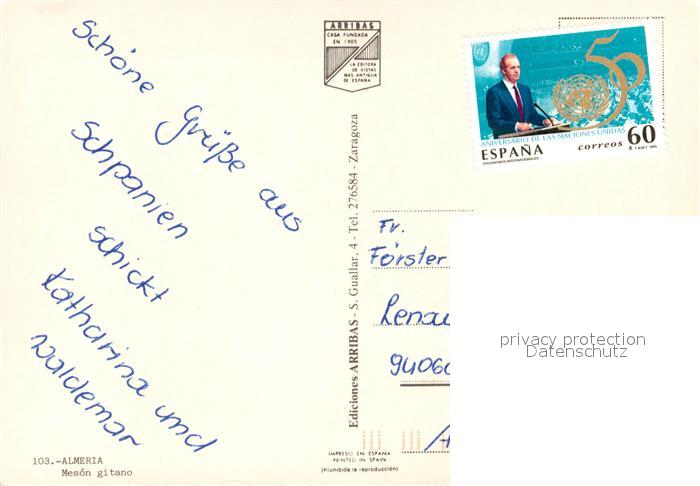 Schöne
Grüße aus
Schpanien
schickt
Katharina und
Waldemar
103.-ALMERIA
Mesón gitano
ARRIBAS
CASA FUNDADA
EN 1905
LA EDITORA
DE VISTAS
MAS ANTIGUA
DE ESPAÑA
Ediciones ARRIBAS - S. Guallar, 4 - Tel. 276584 - Zaragoza
50
ANIVERSARIO DE LAS NACIONES UNIDAS
ESPAÑA correos 60
Fr.
Förster
Lenau
9406
privacy protection
Datenschutz
IMPRESO EN ESPAÑA
PRINTED IN SPAIN
(Prohibida la reproducción)